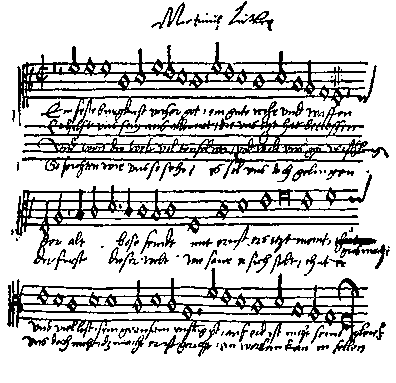 Ein feste burg ist unser got, ein gute wehr und waffen
Er hilfft uns frey aus aller not, die uns itzt hat betroffen
Und wenn die welt vol teuffel wer, und wolt uns gar verschlingen
So furchten wir uns so sehr, es sol uns doch gelingen
Der alt bose feindt mit ernst ers itzt meint,
der furst dieser welt wie saur er sich stelt, thut er
und viel list sein grausam rustung ist, auf erd ist nicht seins gleich
uns doch nicht das macht er ist gericht, ein wortlein kan in fellen